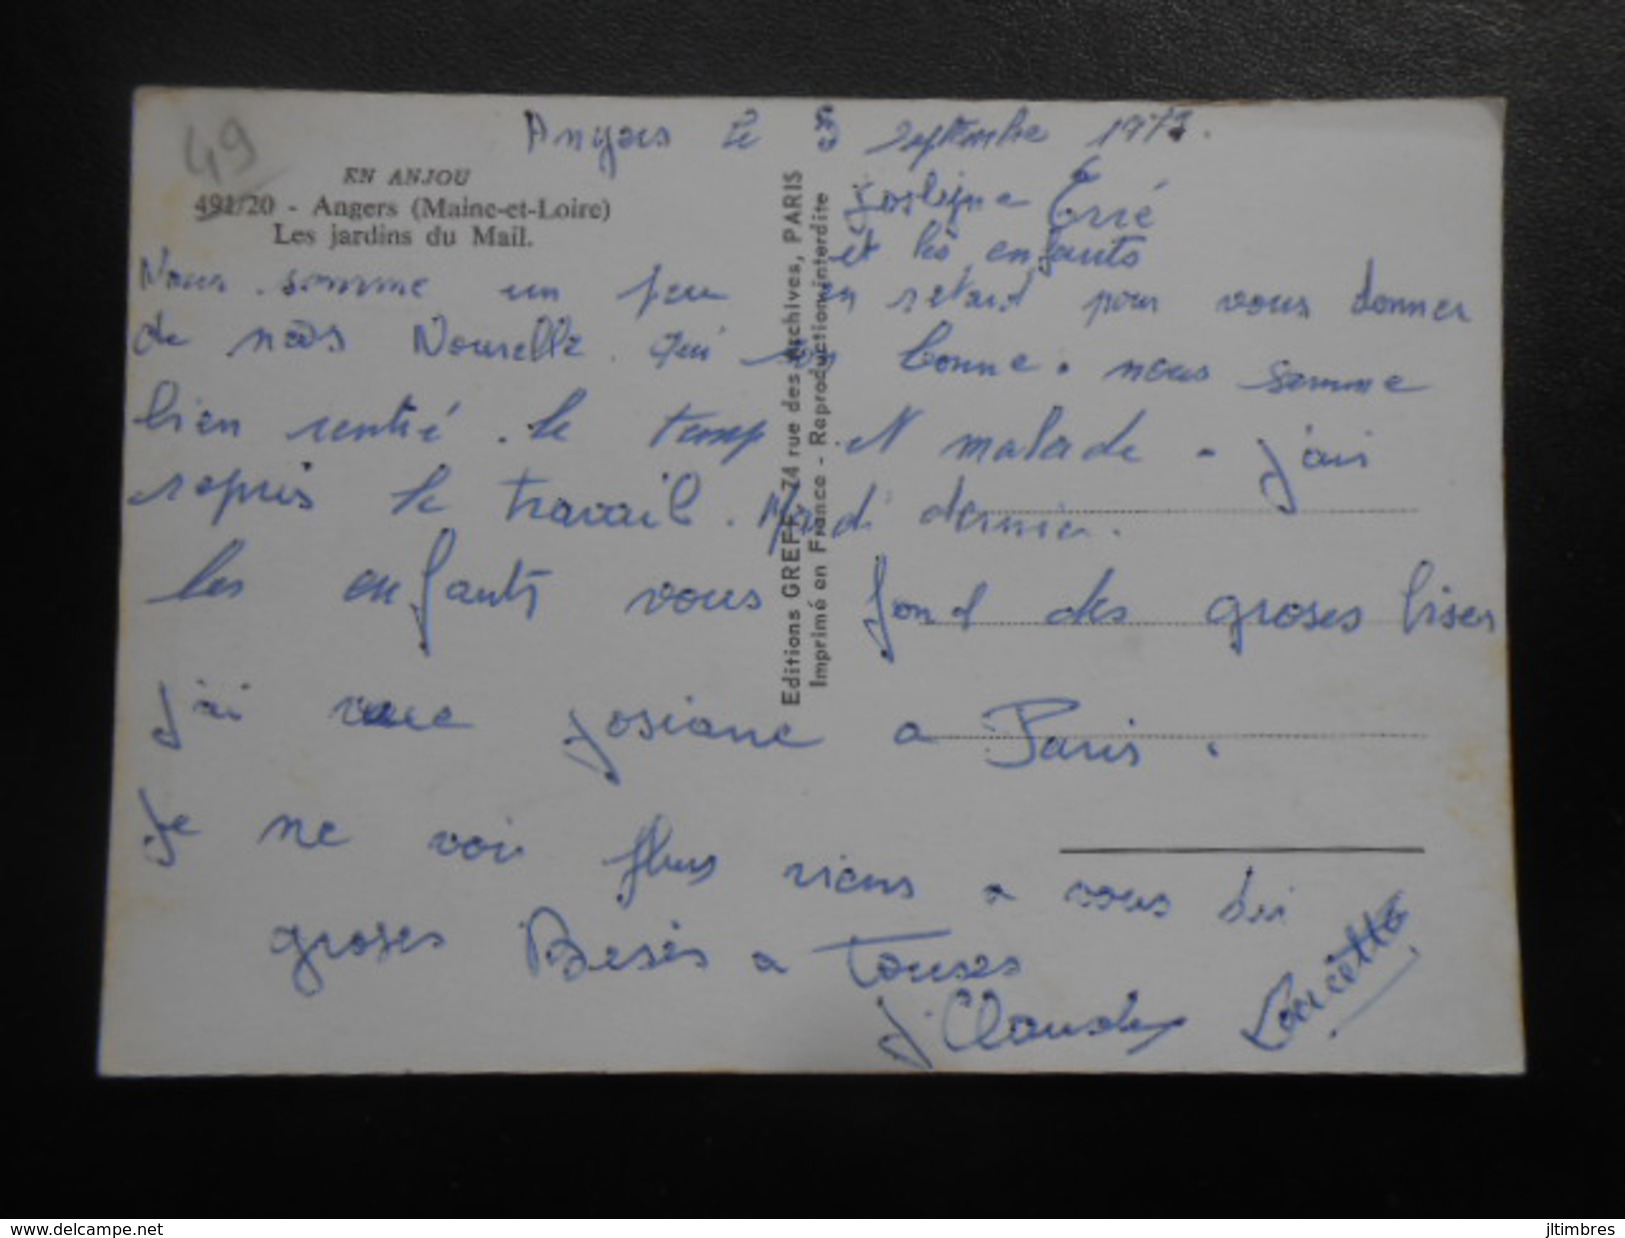 49
Angers le 8 septembre 1973.
EN ANJOU
491/20 - Angers (Maine-et-Loire)
Les jardins du Mail.
Editions GREFF, 74 rue des Archives, PARIS
Imprimé en France - Reproduction interdite
et les enfants
Nous somme un peu en retard pour vous donner
de nos Nouvelle. qui son bonne. nous somme
bien rentré. le temp et malade - j'ais
repris le travail. Mardi dernier.
les enfants vous fond des groses bises
J'ai vue Josiane a Paris.
Je ne voi plus riens a vous dir
groses Beses a Touses
J. Claude Lucette
www.delcampe.net
jltimbres